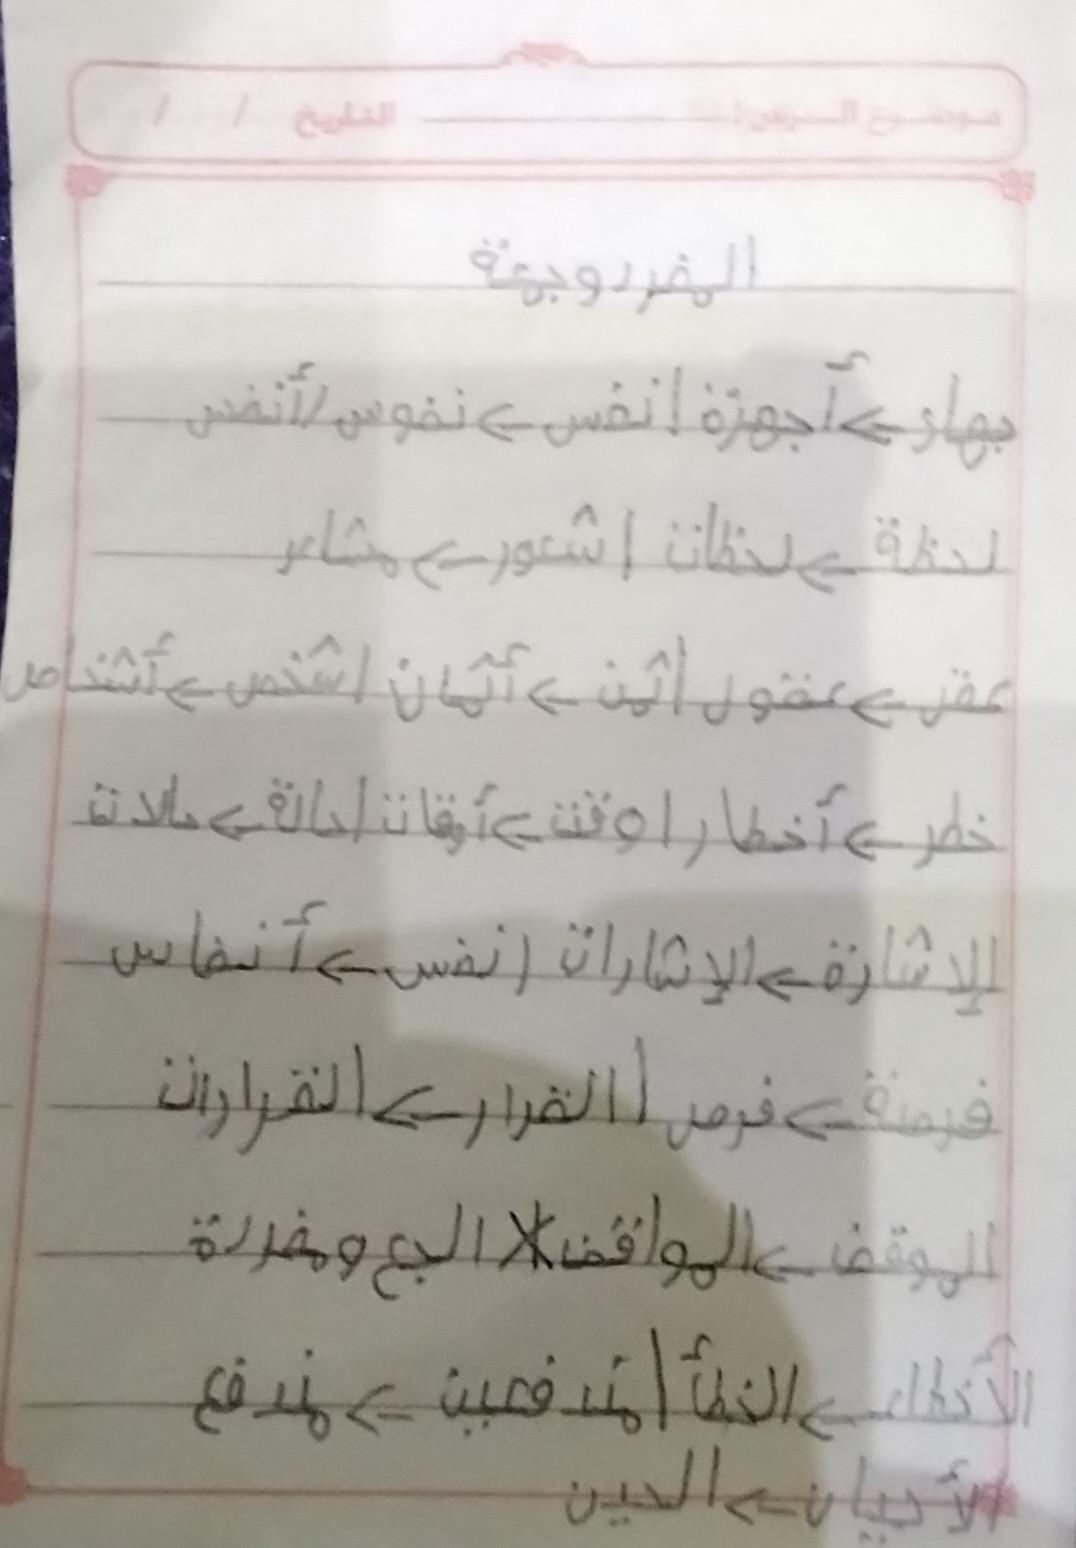 موضوع الدرس: التاريخ / /
المفرد وجمعه
جهاز > أجهزة | نفس > نفوس / أنفس
لحظة > لحظات | شعور > مشاعر
عقل > عقول | ثمن > أثمان | شخص > أشخاص
خطر > أخطار | وقت > أوقات | حالة > حالات
الإشارة > الإشارات | نفس > أنفاس
فرصة > فرص | القرار > القرارات
الموقف > المواقف * الجمع ومفرده
الأخطاء > الخطأ | مندفعين > مندفع
الأديان > الدين